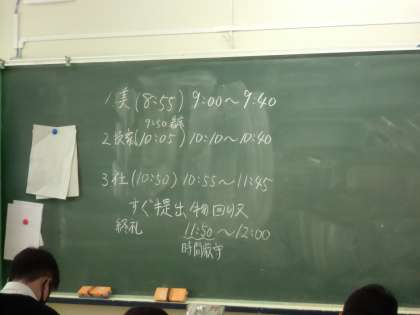 1.美(8:55) 9:00〜9:40
9:50 着席
2.検索(10:05) 10:10〜10:40
3.社(10:50) 10:55〜11:45
すぐ提出物回収
終礼 11:50〜12:00
時間厳守